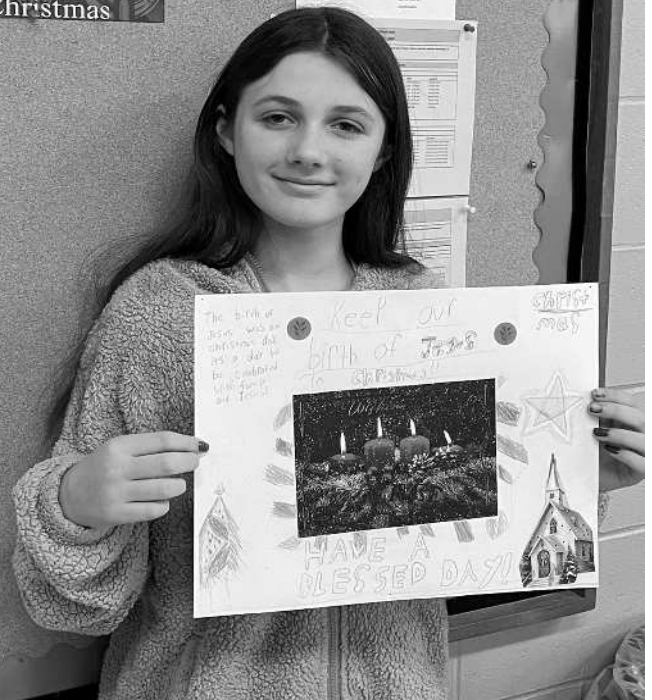 Christmas
The birth of
Jesus was on
christmas day
its a day to
be celebrated
with family
and friends
Keep our
birth of Jesus
To christmas"
christ
mas
HAVE A
BLESSED DAY!